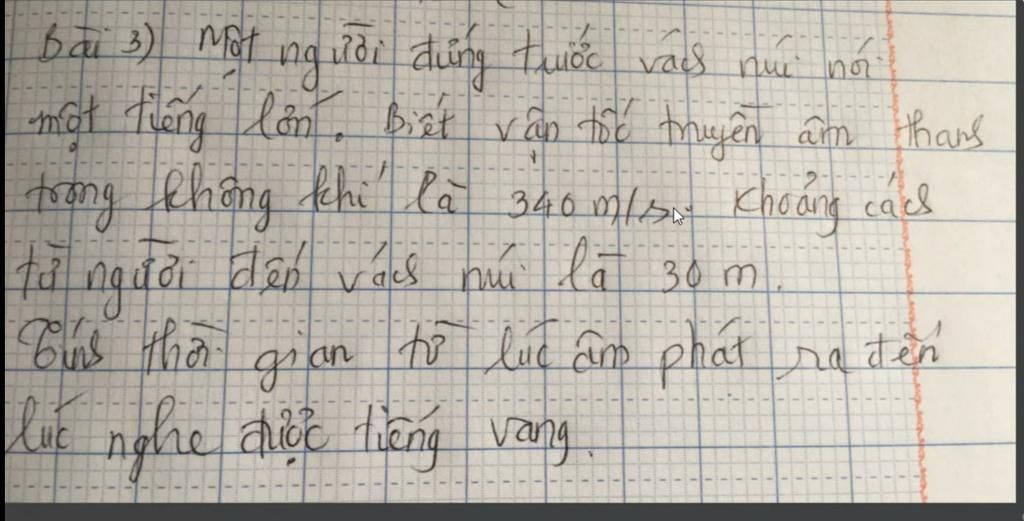 Bài 3) Một người đứng trước vách núi nói
một tiếng lớn. Biết vận tốc truyền âm thanh
trong không khí là 340 m/s. Khoảng cách
từ người đến vách núi là 30 m.
Tính thời gian từ lúc âm phát ra đến
lúc nghe được tiếng vang.